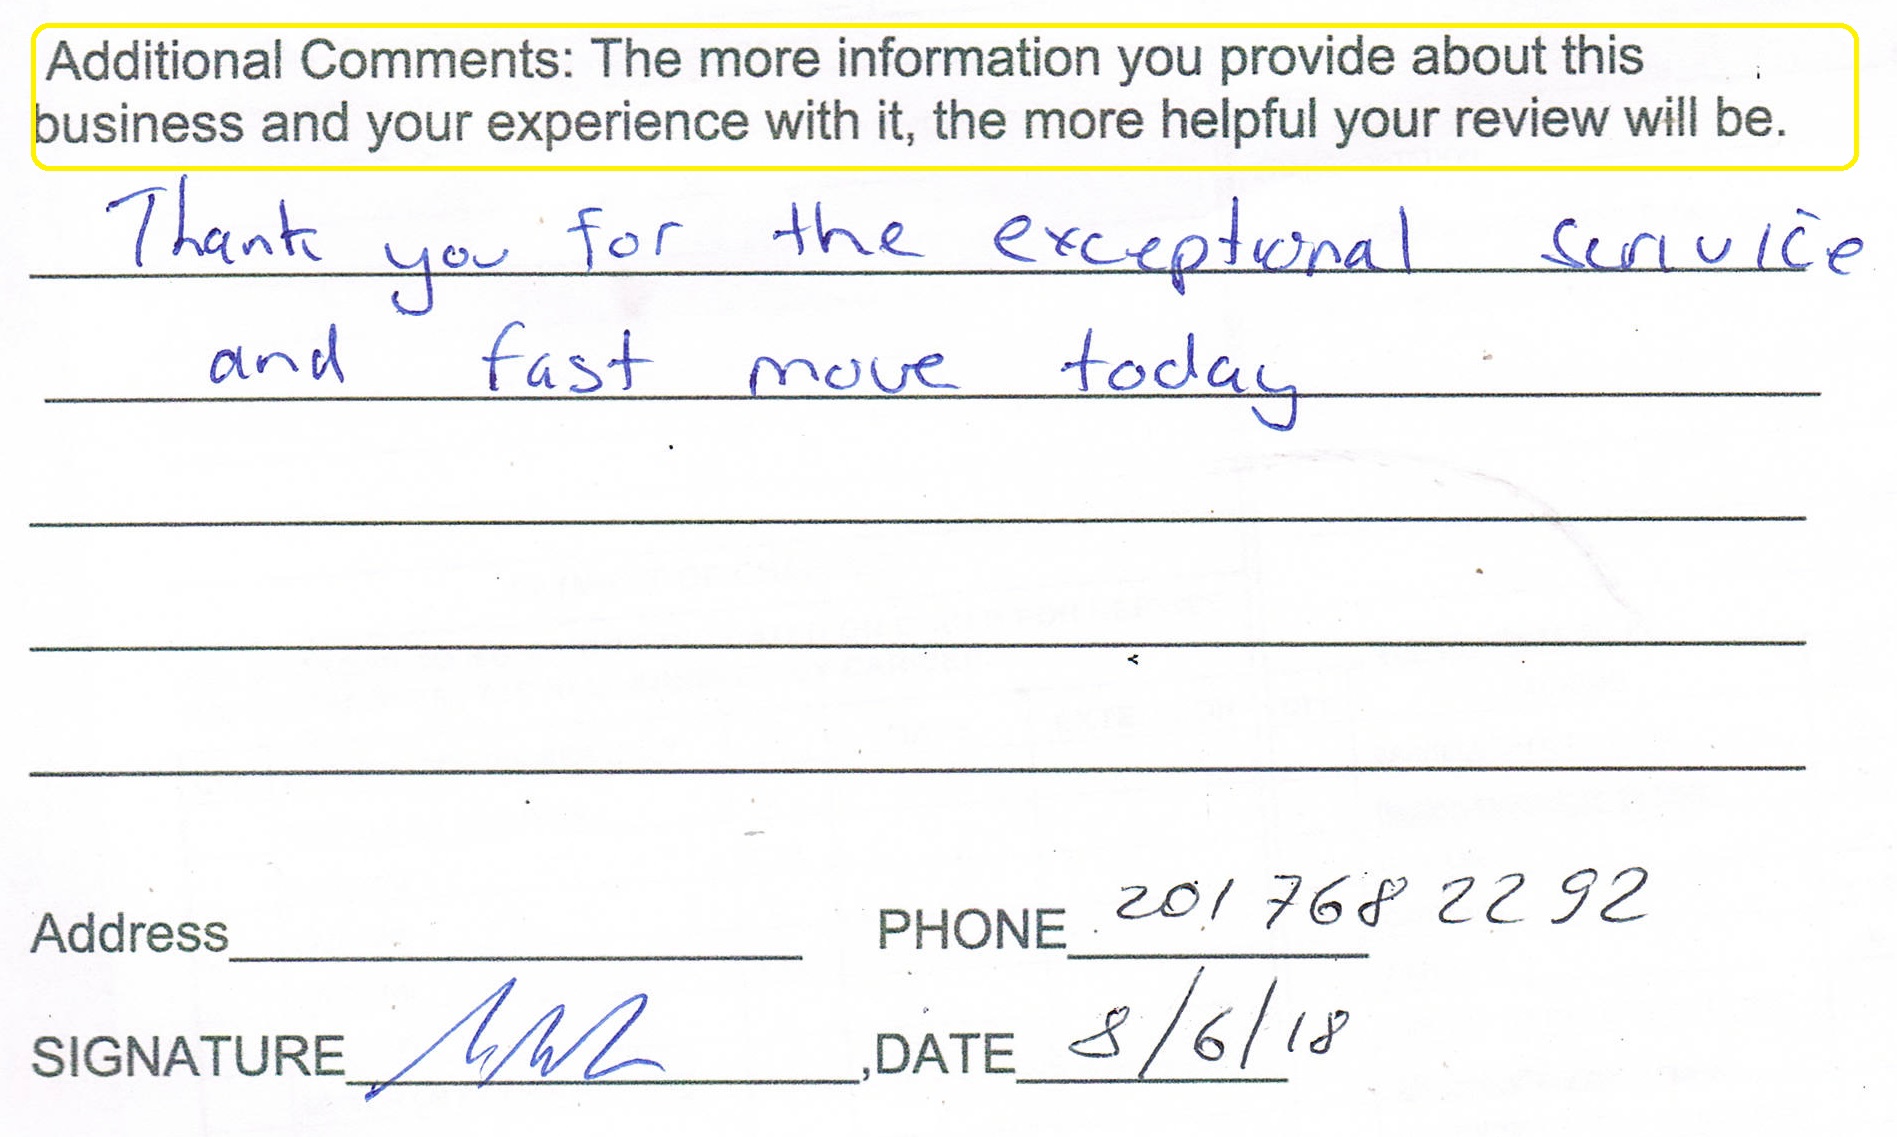 Additional Comments: The more information you provide about this
business and your experience with it, the more helpful your review will be.
Thank you for the exceptional service
and fast move today
Address PHONE 201 768 2292
SIGNATURE ,DATE 8/6/18